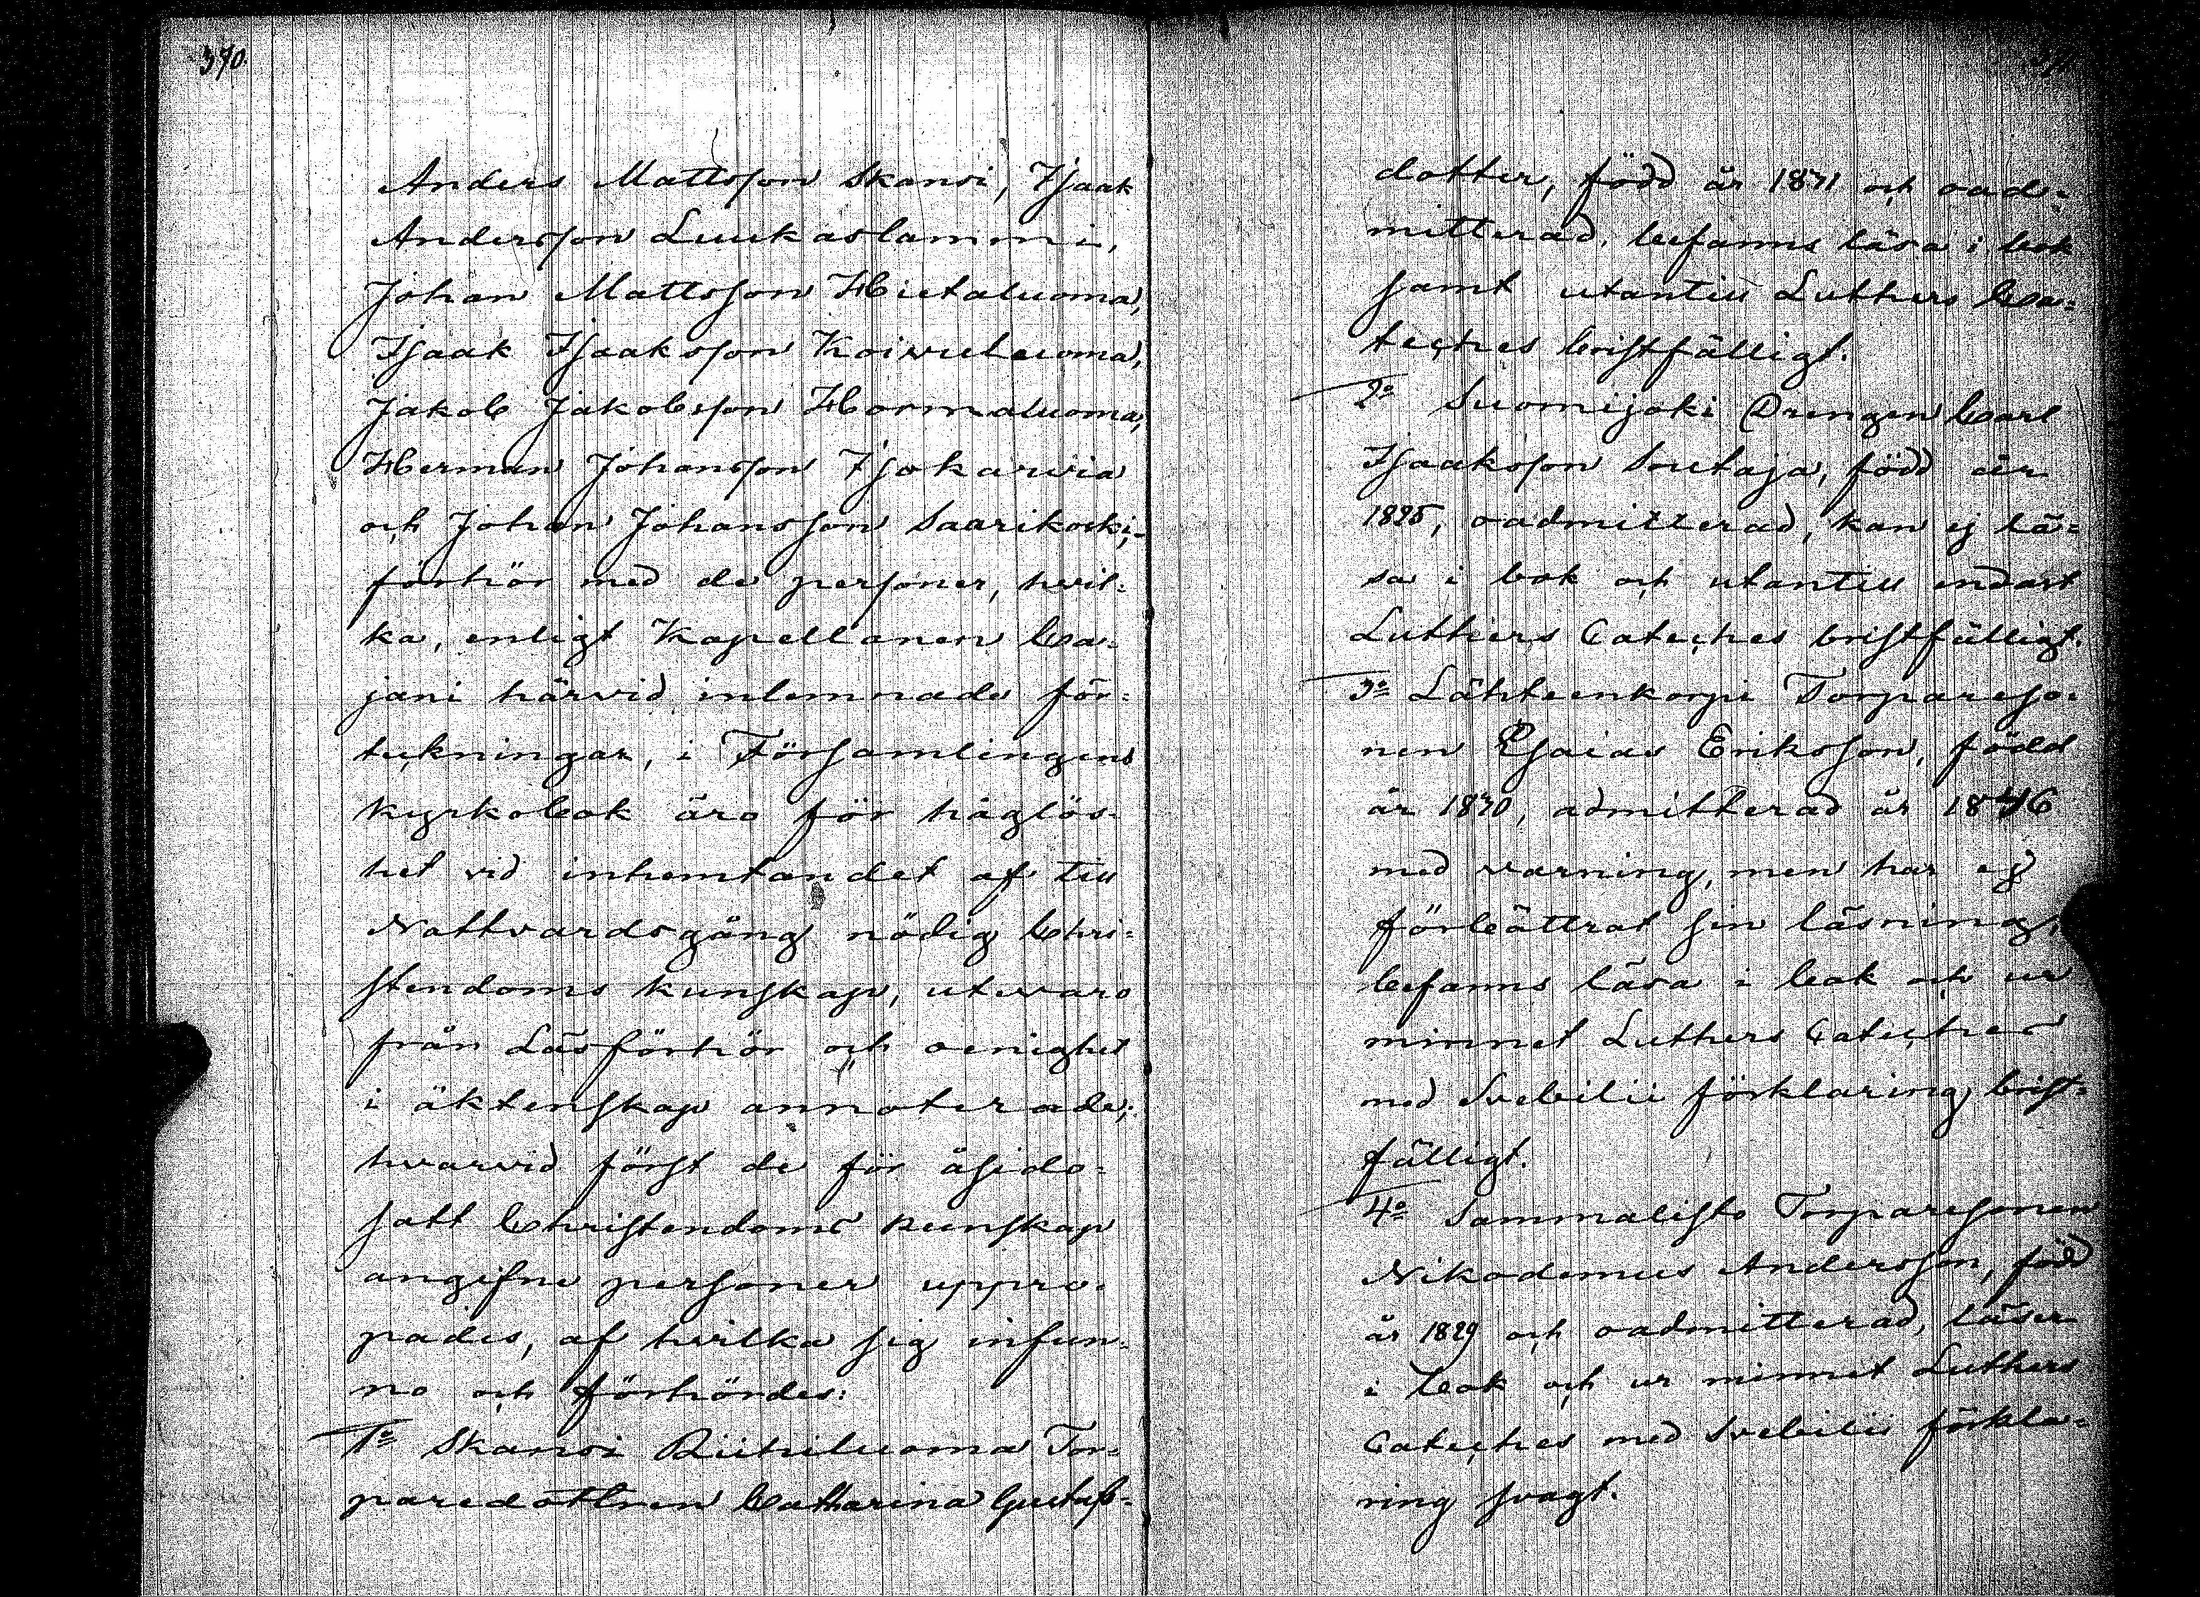 370.
Anders Mattsson Skansi, Isaak
Andersson Luukaslammi,
Johan Mattsson Hietaluoma,
Isaak Isaaksson Koivuluoma,
Jakob Jakobsson Hormaluoma,
Herman Johansson Isokarvia
och Johan Johansson Saarikoski;-
förhör med de personer, hvil-
ka, enligt Kapellanen Ca-
jani härvid inlemnade för-
teckningar, i Församlingens
kyrkobok äro för håglös-
het vid inhemtandet af till
Nattvardsgång nödig Chri-
stendoms kunskap, utevaro
från Läsförhör och oenighet
i äktenskap annoterade;
hvarvid först de för åsido-
satt Christendoms kunskap
angifne personer uppro-
pades, af hvilka sig infun-
no och förhördes:
1o Skansi Riihiluoma Tor-
paredottren Catharina Gustafs-
dotter, född år 1871 och oad-
mitterad, befanns läsa i bok
samt utantill Luthers Ca-
teches bristfälligt.
2o Suomijoki Drengen Carl
Isaaksson Soutaja, född år
1825, oadmitterad, kan ej lä-
sa i bok och utantill endast
Luthers Cateches bristfälligt.
3o Lähteenkorpi Torpareso-
nen Esaias Eriksson, född
år 1870, admitterad år 1846
med varning, men har ej
förbättrat sin läsning,
befanns läsa i bok och ur
minnet Luthers Cateches
med Svebilii förklaring brist-
fälligt.
4o Sammalisto Torparesonen
Nikodemus Andersson, född
år 1829 och oadmitterad, läser
i bok och ur minnet Luthers
Cateches med Svebilii förkla-
ring svagt.